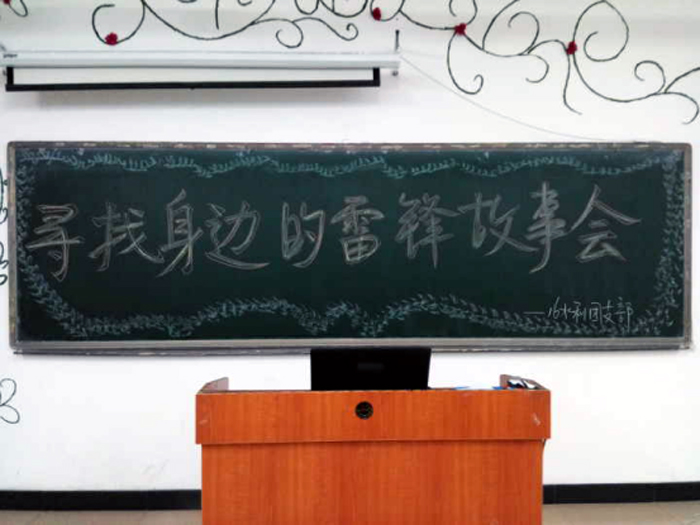 寻找身边的雷锋故事会
—16水利团支部